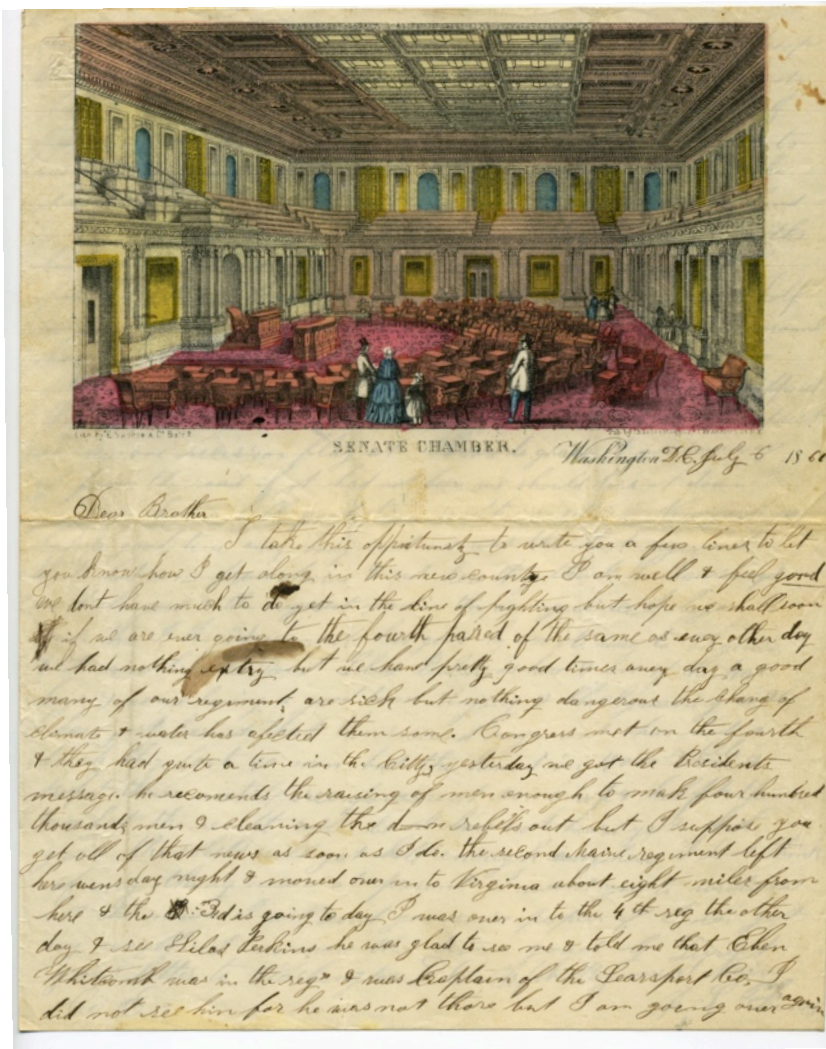 SENATE CHAMBER.
Washington D.C. July 6 186
Dear Brother
I take this oppirtunity to write you a few lines to let
you know how I get along in this new country I am well & feel good
we dont have much to do yet in the line of fighting but hope we shall soon
if we are ever going to the fourth passed of the same as evey other day
we had nothing extry but we have pretty good times every day a good
many of our regiment are sick but nothing dangerous the chang of
climate & water has afected them some. Congress met on the fourth
& they had quite a time in the Citty yesterday we got the Presidents
message he recoments the raising of men enough to make four hundred
thousands men & cleaning the d—n rebells out but I suppose you
get all of that news as soon as I do. the second Maine regiment left
here wensday night & moved over in to Virginia about eight miles from
here & the 3d is going to day I was over in to the 4th reg the other
day & see Silas Perkins he was glad to see me & told me that Eben
Whitcomb was in the reg & was Captain of the Searsport Co, I
did not see him for he was not there but I am going over again